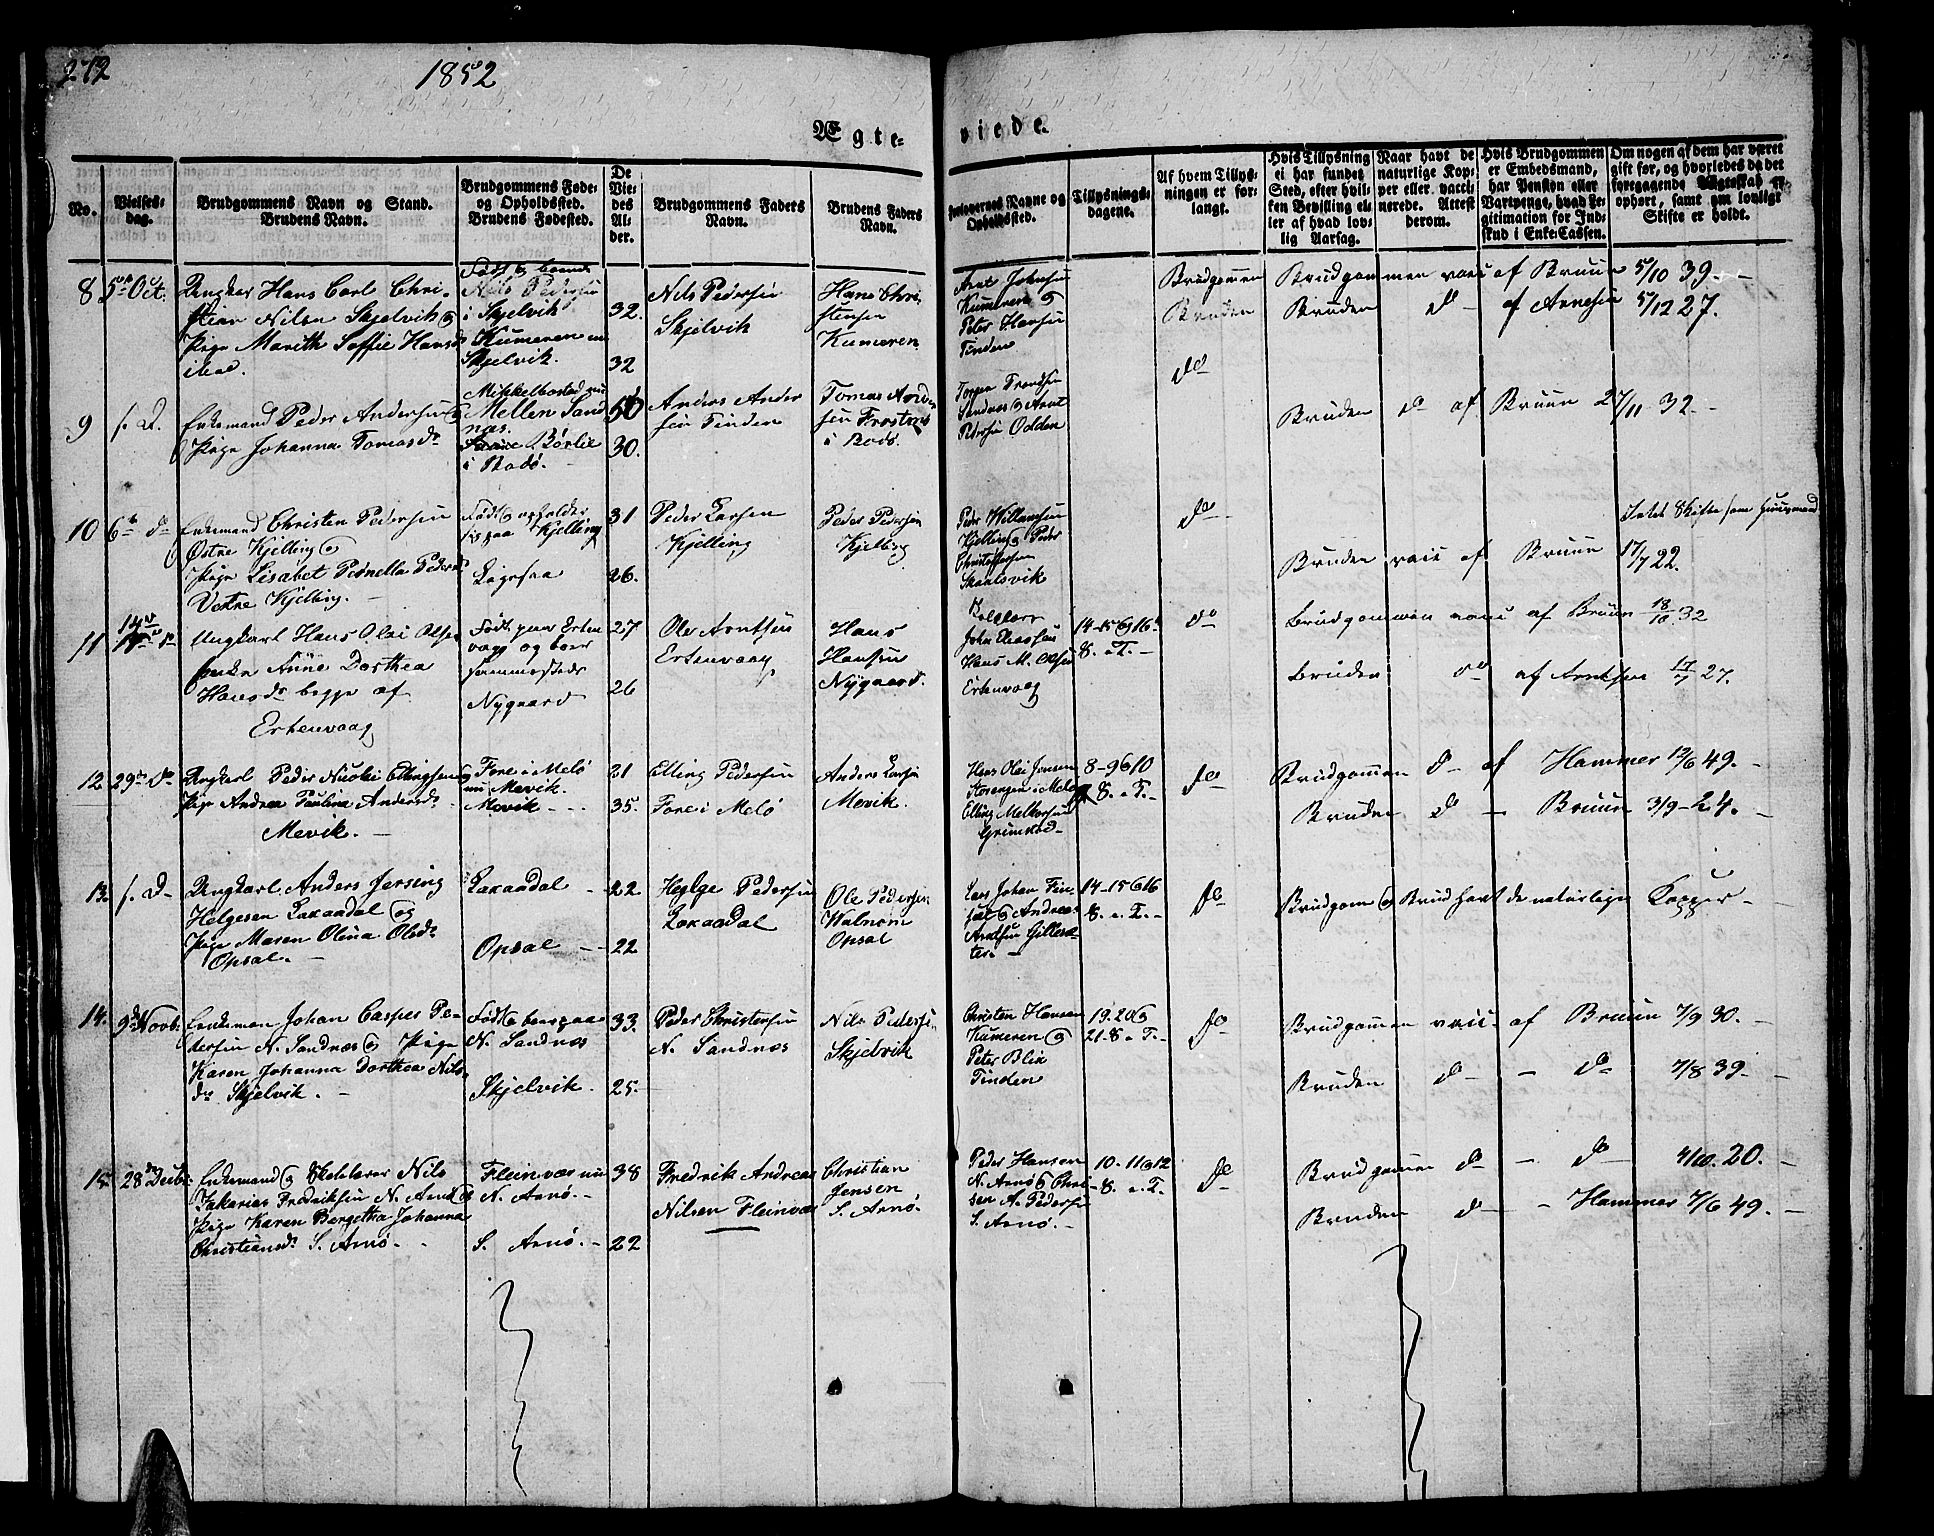 272
1852
Ægte-
viede.
No.
Vielses-
dag.
Brudgommens Navn og Stand.
Brudens Navn.
Brudgommens Føde-
og Opholdssted.
Brudens Fødested.
De
Vie-
des
Al-
der.
Brudgommens Faders
Navn.
Brudens Faders
Navn.
Forlovernes Navne og
Opholdssted.
Tillysnings-
dagene.
Af hvem Tillys-
ningen er for-
langt.
Hvis Tillysning
ei har fundet
Sted, efter hvil-
ken Bevilling el-
ler af hvad lov-
lig Aarsag.
Naar havt de
naturlige Kop-
per eller vacci-
nerede. Attest
derom.
Hvis Brudgommen
er Embedsmand,
har Pension eller
Vartpenge, hvad Le-
gitimation for Ind-
skud i Enke-Cassen.
Om nogen af dem har været
gift før, og hvorledes da det
foregaaende Ægteskab er
ophørt, samt om lovligt
Skifte er holdt.
8
5te Oct.
Ungkar Hans Carl Chri-
stian Nilsen Skjelvik og
Pige Marith Soffie Hans-
Nils Pedersen
i Skjelvik
Kumeren
Skjelvik.
32.
32
Nils Pedersen
Skjelvik
Hans Chri
stensen
Kumeren
Arnt Johnsen
Kumeren og
Peter Hansen
Tinden
Brudgommen
Bruden
do
Brudgommen vacc af Bruun 5/10 39. -
Bruden do - af Arnesen 5/12 27.
9
s. D.
Enkemand Peder Andersen og
Pige Johanna Tomasdr
Mikkelbostad nu
Mellem Sand
næs.
Børlie
i Bodø. -
50
30.
Anders Ander
sen Tinden
Tomas
sen
i Bodø.
Sandnæs og Arnt
Pedersen Odden
Bruden do af Bruun 2/11 32. -
10
6te do
Enkemand Christen Pedersen
Østre Kjelling og
Pige Lisabet Pernella Peders
Vestre Kjelling. -
Født og opholder
sig paa Kjelling
Ligesaa
31
26.
Peder Larsen
Kjelling
Peder Pedersen
Kjelling
Peder Willumsen
Kjelling og Peder
Christophersen
Skaalsvik
do
Intet Skifte som Huusmand
Bruden vacc af Bruun 17/7 22.
11
14de
Ungkarl Hans Olai Olsen
Anne Dorthea
Hansdr begge af
Ertenvaag
Født paa Erten
vaag og boer
sammesteds
Nygaard
27
26
Ole Arntsen
Ertenvaag
Hans
Hansen
Nygaard.
John Eliassen
Hans M. Olsen
Ertenvaag
14-15 og 16
8. a T. -
do
Brudgommen vacc af Bruun 18/10 32
Bruden do af Arntsen 17/7 27.
12
29de do
Ungkarl Peder Nicolai Ellingsen og
Pige Andrea Paulina Andersdr
Mevik. -
Fore i Melø
nu Mevik.
Mevik - -
21
35.
Elling Pedersen
Fore i Melø
Anders Larsen
Mevik.
Hans Olai Jensen
Storengen i Melø
Elling Melkersen
Grimstad -
8-9 og 10
8. a T. -
do
Brudgommen do - af Hammer 12/6 49. -
Bruden do - Bruun 3/9 - 24. -
13.
s. D -
Ungkarl Anders Jersing
Helgesen Laxaadal og
Pige Maren Olina Olsdr
Opsal. -
Laxaadal - -
Opsal - -
22
22
Helge Pedersen
Laxaadal
Ole Pedersen
Walnum
Opsal
Lars Johan Fin-
sat og Andreas
Arntsen Gillesæ-
ter. -
14-15 og 16
8. a T. -
do
Brudgom og Brud havt de naturlige Kopper -
14.
9de Novbr.
Enkeman Johan Casper Pe-
dersen N. Sandnæs og Pige
Karen Johanna Dorthea Nils
dr Skjelvik. -
Født og boer paa
N. Sandnæs
Skjelvik. -
33.
25.
Peder Christensen
N. Sandnæs
Nils Pedersen
Skjelvik
Christen Hansen
Kumeren og
Peter Blix
Tinden
19. 20 og
21. 8. a T. -
do
Brudgommen vacc - af Bruun 7/9 30. -
Bruden do - - do 7/8 39. -
15.
28de Decbr.
Enkemand og Skolelærer Nils
Zakarias Fredriksen N. Arnø og
Pige Karen Bergetha Johanna
Christiansdr S. Arnø. -
Fleinvær nu
N. Arnø. -
S. Arnø. -
38
22
Fredrik Andreas
Nilsen Fleinvær
Christian
Jensen
S. Arnø.
Peder Hansen
N. Arnø og Chri-
sten A. Pedersen
S. Arnø. -
10. 11 og 12
8. a T. -
do
Brudgommen do - - do 4/10. 20. -
Bruden do - - Hammer 7/6 49. -